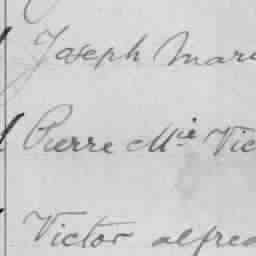 Joseph Mari
Pierre Mie Vic
Victor alfred